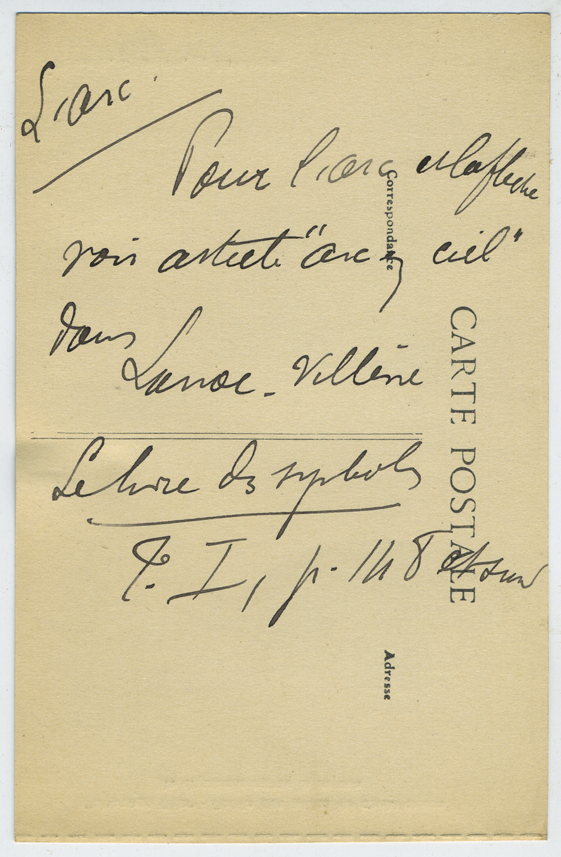 L'arc.
Pour l'arc et la fleche
voir article "arc en ciel"
dans
Lanoe-Villène
Le livre des symboles
T. I, p. 148 et suiv
Correspondance
CARTE POSTALE
Adresse